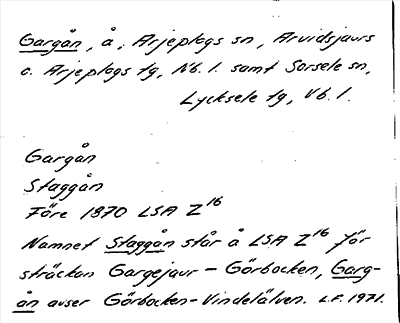 Gargån, å, Arjeplogs sn, Arvidsjaurs
o. Arjeplogs tg, Nb. l. samt Sorsele sn,
Lycksele tg, Vb. l.
Gargån
Staggån
Före 1870 LSA Z16
Namnet Staggån står å LSA Z16 för
sträckan Gargejaur - Görbocken, Garg-
ån avser Görbocken-Vindelälven. L.F. 1971.